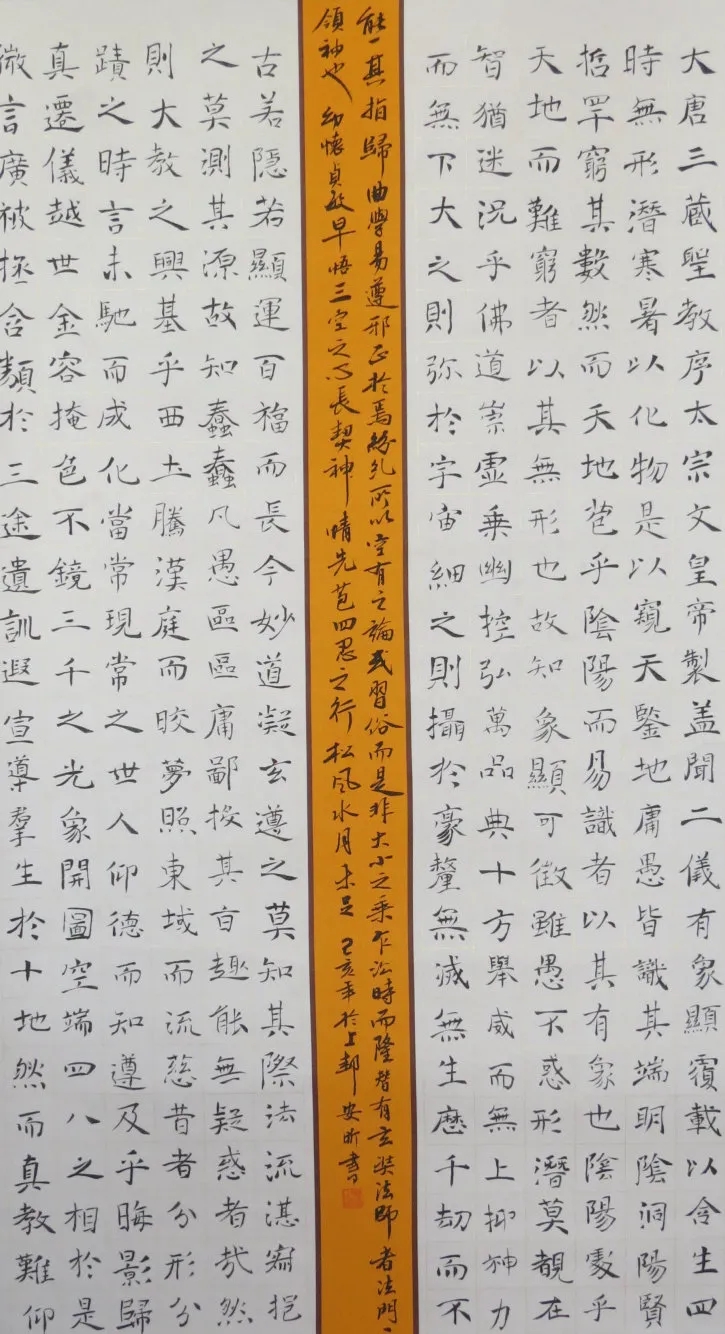 大唐三藏聖教序太宗文皇帝製盖聞二儀有象顯覆載以含生四
時無形潛寒暑以化物是以窺天鑒地庸愚皆識其端明陰洞陽賢
哲罕窮其數然而天地苞乎陰陽而易識者以其有象也陰陽處乎
天地而難窮者以其無形也故知象顯可徵雖愚不惑形潛莫覩在
智猶迷況乎佛道崇虛乘幽控弘萬品典十方舉威而無上抑神力
而無下大之則弥於宇宙細之則攝於豪釐無滅無生歷千劫而不
古若隱若顯運百福而長今妙道凝玄遵之莫知其際法流湛寂挹
之莫測其源故知蠢蠢凡愚區區庸鄙投其旨趣能無疑惑者哉然
則大教之興基乎西土騰漢庭而皎夢照東域而流慈昔者分形分
蹟之時言未馳而成化當常現常之世人仰德而知遵及乎晦影歸
真遷儀越世金容掩色不鏡三千之光象開圖空端四八之相於是
微言廣被拯含類於三途遺訓遐宣導羣生於十地然而真教難仰
能一其指歸曲學易遵邪正於焉紛糺所以空有之論或習俗而是非大小之乘乍沿時而隆替有玄奘法師者法門之
領袖也幼懷貞敏早悟三空之心長契神情先苞四忍之行松風水月未足 己亥年於上邽安昕書